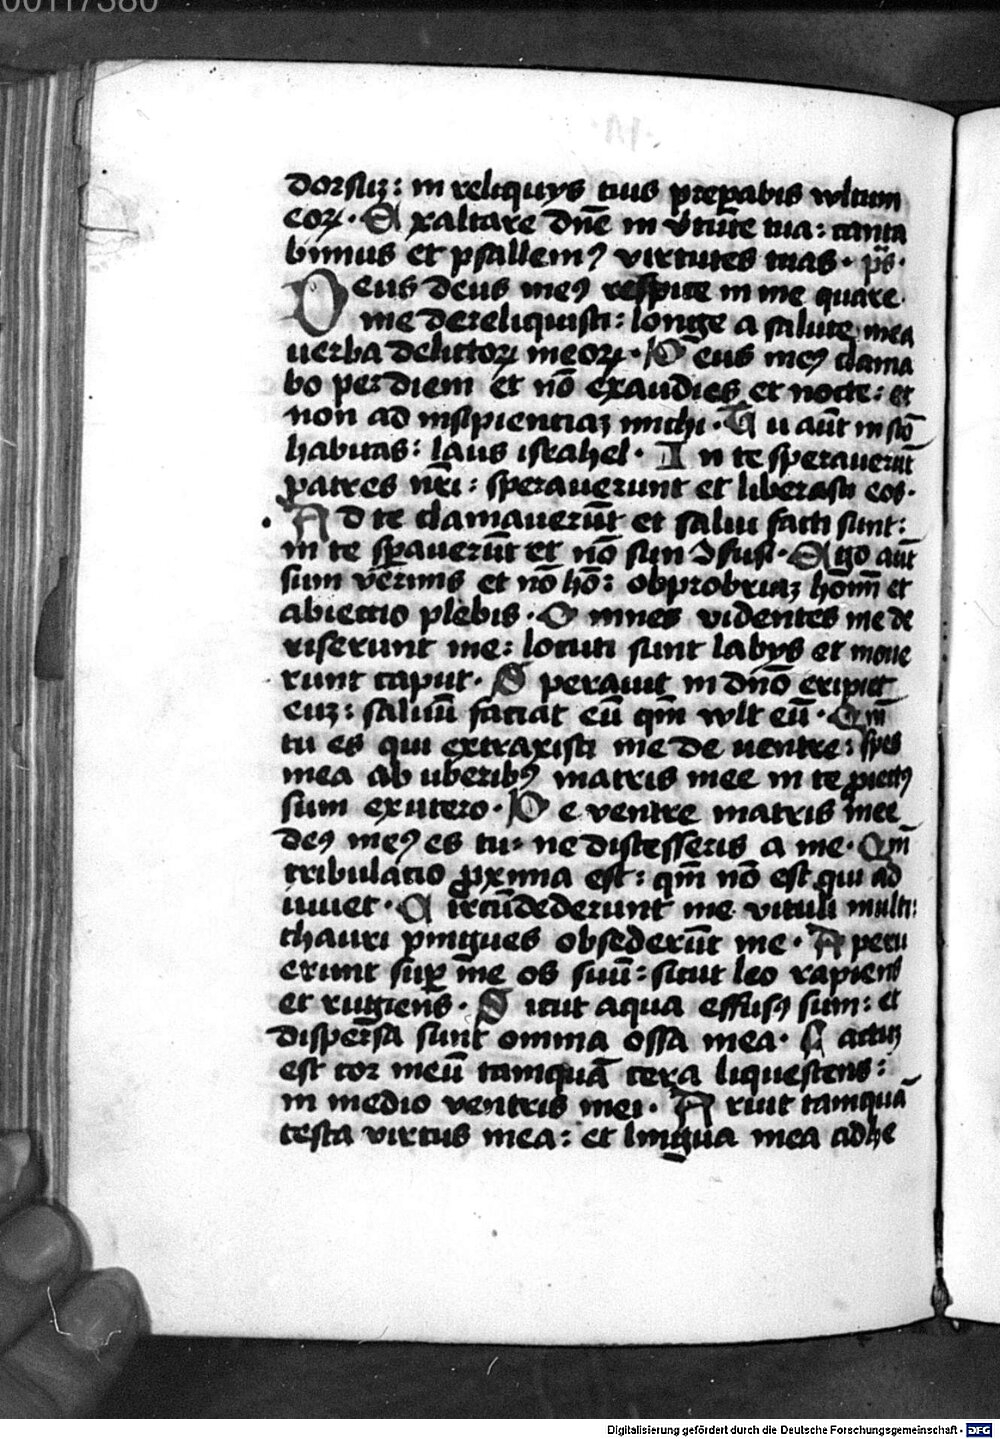 00117380
dorsuꝫ: in reliquijs tuis preparabis vultum
eoꝝ. Exaltare dn̄e in v̄tute tua: canta
bimus et psallemꝰ virtutes tuas. p̄s.
Deus deus meꝰ respice in me quare
me dereliquisti: longe a salute mea
uerba delictoꝝ meoꝝ. Deus meꝰ clama
bo per diem et nō exaudies et nocte: et
non ad insipientiaꝫ michi. Tu aūt in sc̄o
habitas: laus israhel. In te sperauerūt
patres nr̄i: sperauerunt et liberasti eos.
Ad te clamauerūt et salui facti sunt:
in te sꝑauerūt et nō sun ꝯfusi. Ego aūt
sum vermis et nō hō: obprobriuꝫ homī et
abiectio plebis. Omnes videntes me de
riserunt me: locuti sunt labijs et moue
runt caput. Sperauit in dn̄o eripiet
euꝫ: saluū faciat eū qm̄ vult eū. Qm̄
tu es qui extraxisti me de uentre: spes
mea ab uberibꝰ matris mee in te ꝓiectꝰ
sum ex utero. De ventre matris mee
deꝰ meꝰ es tu: ne discesseris a me. Qm̄
tribulatio ꝓxima est: qm̄ nō est qui ad
iuuet. Circūdederunt me vituli multi:
thauri pingues obsederūt me. Aperu
erunt suꝑ me os suū: sicut leo rapiens
et rugiens. Sicut aqua effusꝰ sum: et
dispersa sunt omnia ossa mea. Factuꝫ
est cor meū tamquā cera liquescens:
in medio ventris mei. Aruit tamquā
testa virtus mea: et lingua mea adhe
Digitalisierung gefördert durch die Deutsche Forschungsgemeinschaft - DFG